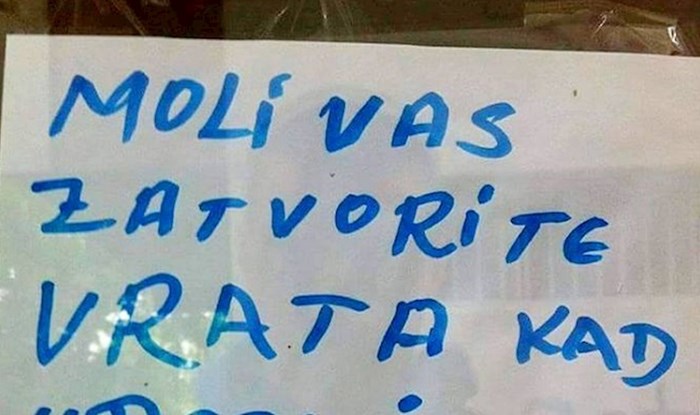 MOLi VAS
ZATVORiTE
VRATA KAD